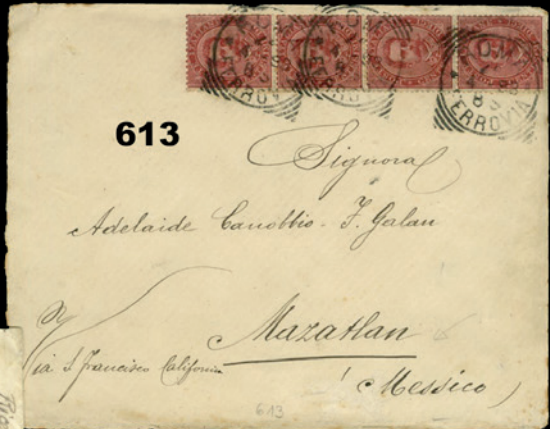 COMO
FERROVIA
613
Signora
Adelaide Canobbio. F. Galan
Mazatlan
Via S. Francisco California
(Messico)
613